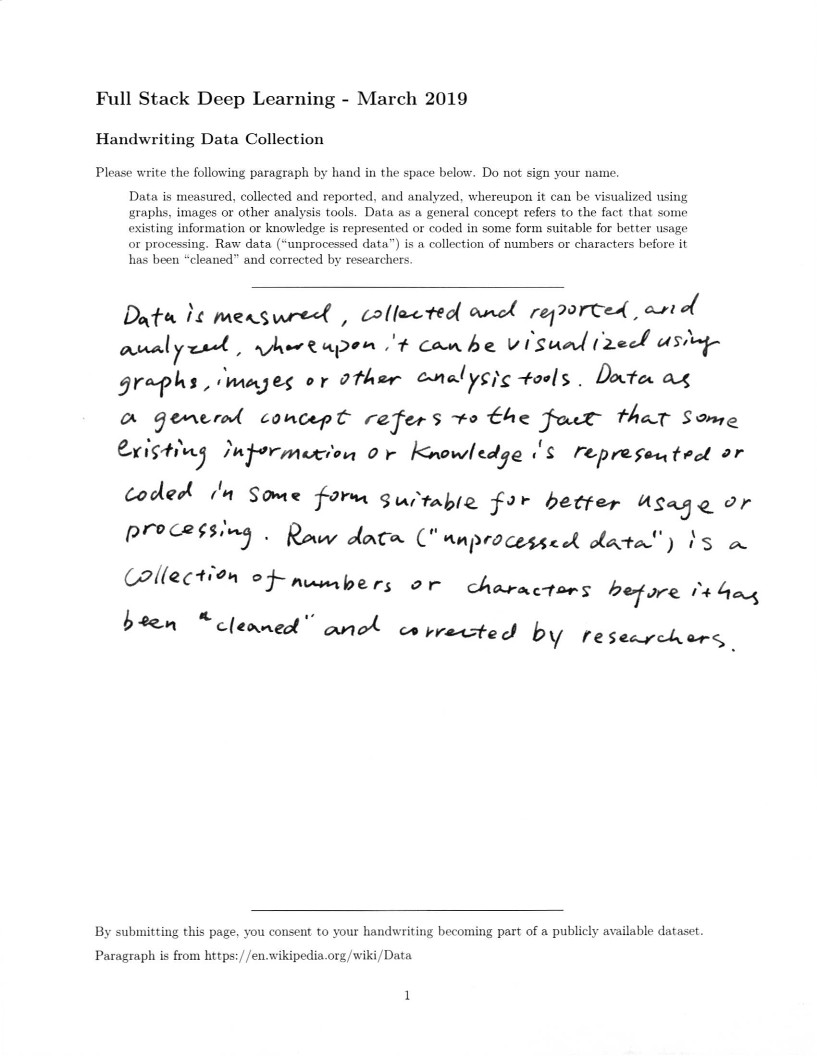 Full Stack Deep Learning - March 2019
Handwriting Data Collection
Please write the following paragraph by hand in the space below. Do not sign your name.
Data is measured, collected and reported, and analyzed, whereupon it can be visualized using
graphs, images or other analysis tools. Data as a general concept refers to the fact that some
existing information or knowledge is represented or coded in some form suitable for better usage
or processing. Raw data (“unprocessed data”) is a collection of numbers or characters before it
has been “cleaned” and corrected by researchers.
Data is measured, collected and reported, and
analyzed, whereupon it can be visualized using
graphs, images or other analysis tools. Data as
a general concept refers to the fact that some
existing information or knowledge is represented or
coded in some form suitable for better usage or
processing. Raw data ("unprocessed data") is a
collection of numbers or characters before it has
been "cleaned" and corrected by researchers.
By submitting this page, you consent to your handwriting becoming part of a publicly available dataset.
Paragraph is from https://en.wikipedia.org/wiki/Data
1